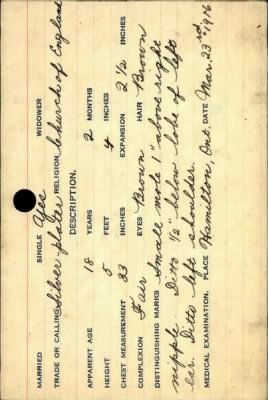 MARRIED SINGLE Yes WIDOWER
TRADE OR CALLING Silver-plater RELIGION Church of England
DESCRIPTION.
APPARENT AGE 18 YEARS 2 MONTHS
HEIGHT 5 FEET 4 INCHES
CHEST MEASUREMENT 33 INCHES EXPANSION 2 1/2 INCHES
COMPLEXION Fair EYES Brown HAIR Brown
DISTINGUISHING MARKS Small mole 1" above right
nipple. Ditto 1/2" below lobe of left
ear. Ditto left shoulder.
MEDICAL EXAMINATION. PLACE Hamilton, Ont. DATE Mar. 23rd 1916